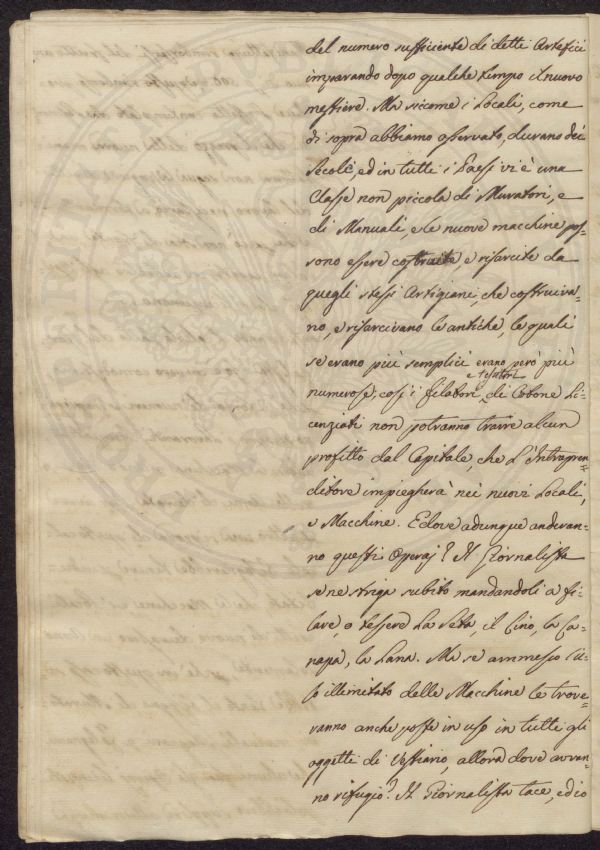 del numero sufficiente di detti Artefici
imparando dopo qualche tempo il nuovo
mestiere. Ma siccome i Locali, come
di sopra abbiamo osservato, durano dei
Secoli, ed in tutti i Paesi vi è una
Classe non piccola di Muratori, e
di Manuali, e le nuove macchine pos-
sono essere costruite, e risarcite da
quegli stessi Artigiani, che costruiva-
no, e risarcivano le antiche, le quali
se erano più semplici erano però più
e tessitori
numerose; così i filatori di Cotone Li-
cenziati non potranno trarre alcun
profitto dal Capitale, che L'Intrapren-
ditore impiegherà nei nuovi Locali,
e Macchine. E dove adunque anderan-
no questi Operaj? Il Giornalista
se ne striga subito mandandoli a fi-
lare, o tessere La Seta, il Lino, la Ca-
napa, la Lana. Ma se ammesso l'u-
so illimitato delle Macchine le trove-
ranno anche poste in uso in tutti gli
oggetti di Vestiario, allora dove avran-
no rifugio? Il Giornalista tace, ed io